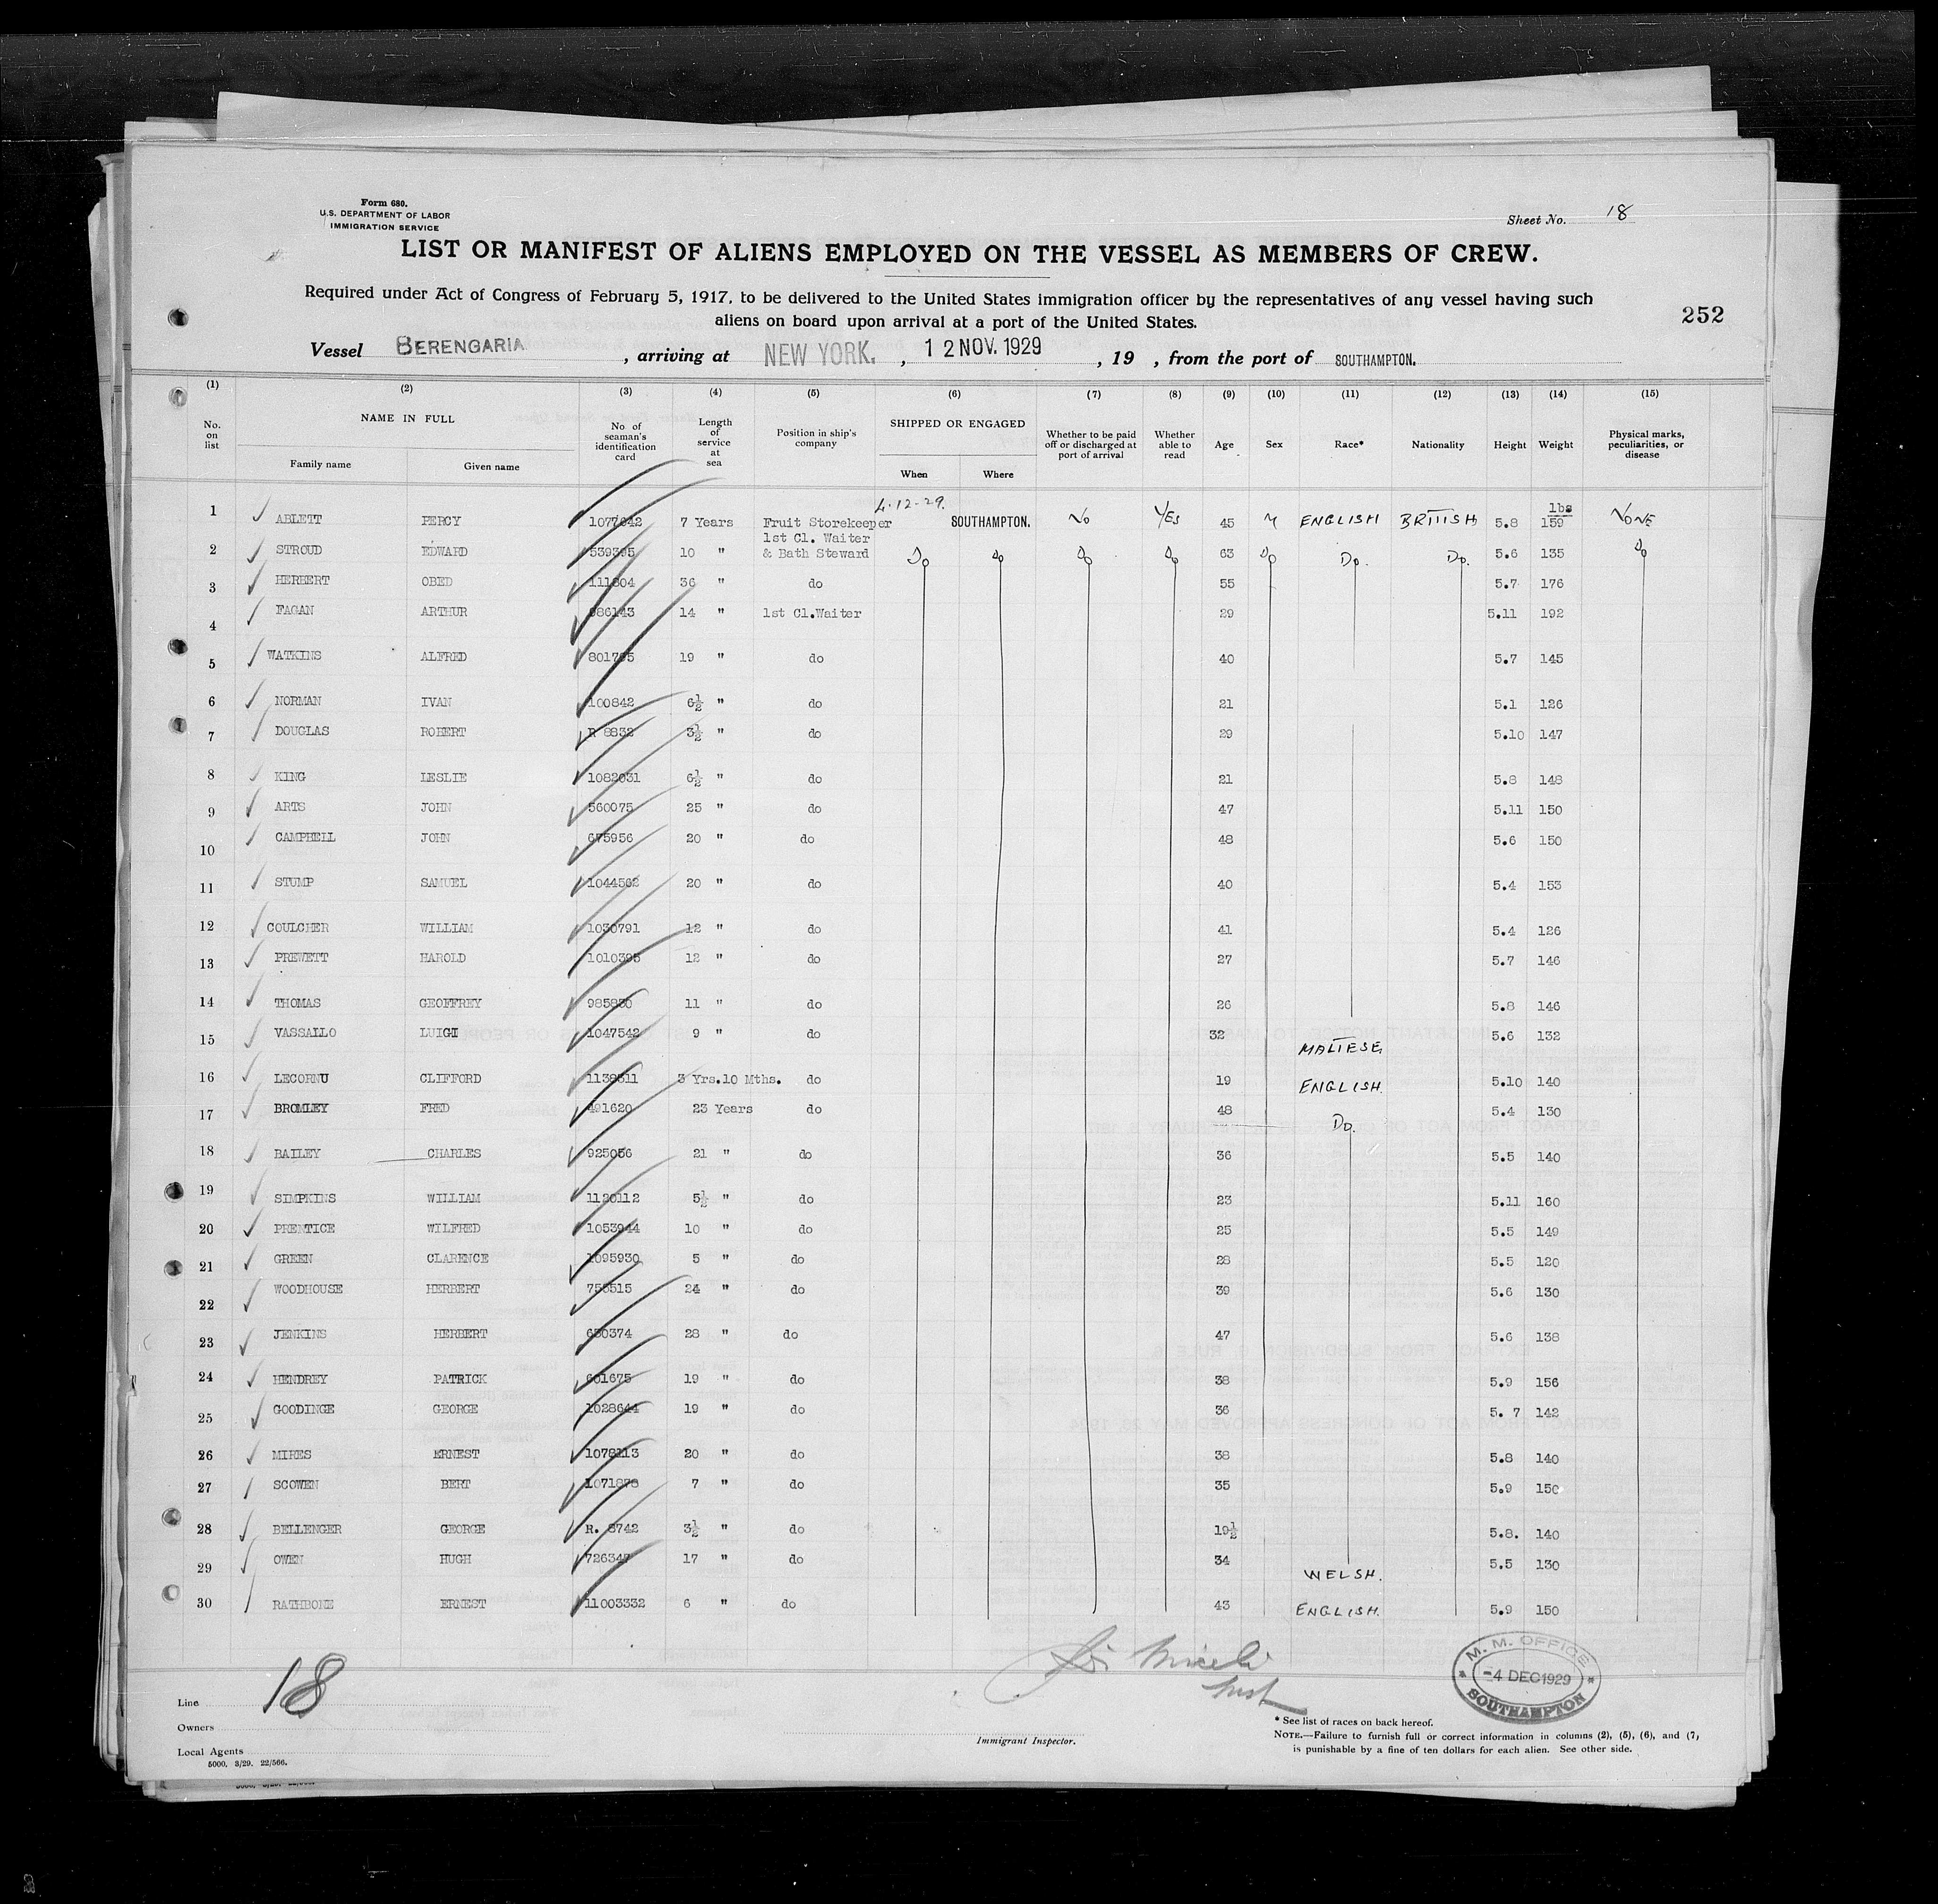 Form 680.
U.S. DEPARTMENT OF LABOR
IMMIGRATION SERVICE
Sheet No. 18
LIST OR MANIFEST OF ALIENS EMPLOYED ON THE VESSEL AS MEMBERS OF CREW.
Required under Act of Congress of February 5, 1917, to be delivered to the United States immigration officer by the representatives of any vessel having such
aliens on board upon arrival at a port of the United States.
252
Vessel BERENGARIA, arriving at NEW YORK., 12 NOV. 1929, 19 , from the port of SOUTHAMPTON.
(1) (2) (3) (4) (5) (6) (7) (8) (9) (10) (11) (12) (13) (14) (15)
No. on list NAME IN FULL Family name Given name No. of seaman's identification card Length of service at sea Position in ship's company SHIPPED OR ENGAGED When Where Whether to be paid off or discharged at port of arrival Whether able to read Age Sex Race* Nationality Height Weight Physical marks, peculiarities, or disease
1 ABLETT PERCY 1077642 7 Years Fruit Storekeeper 4-12-29. SOUTHAMPTON. NO YES 45 M ENGLISH BRITISH 5.8 lbs 159 NONE
2 STROUD EDWARD 539395 10 " 1st Cl. Waiter & Bath Steward Do Do Do Do 63 Do Do. Do. 5.6 135 Do
3 HERBERT OBED 111804 36 " do 55 5.7 176
4 FAGAN ARTHUR 986143 14 " 1st Cl.Waiter 29 5.11 192
5 WATKINS ALFRED 801795 19 " do 40 5.7 145
6 NORMAN IVAN 100842 6½ " do 21 5.1 126
7 DOUGLAS ROBERT R 8832 3½ " do 29 5.10 147
8 KING LESLIE 1082031 6½ " do 21 5.8 148
9 ARTS JOHN 560075 25 " do 47 5.11 150
10 CAMPBELL JOHN 675956 20 " do 48 5.6 150
11 STUMP SAMUEL 1044562 20 " do 40 5.4 153
12 COULCHER WILLIAM 1030791 12 " do 41 5.4 126
13 PREWETT HAROLD 1010395 12 " do 27 5.7 146
14 THOMAS GEOFFREY 985830 11 " do 26 5.8 146
15 VASSALLO LUIGI 1047542 9 " do 32 MALTESE 5.6 132
16 LECORNU CLIFFORD 1138511 3 Yrs.10 Mths. do 19 ENGLISH. 5.10 140
17 BROMLEY FRED 491620 23 Years do 48 Do. 5.4 130
18 BAILEY CHARLES 925056 21 " do 36 5.5 140
19 SIMPKINS WILLIAM 1120112 5½ " do 23 5.11 160
20 PRENTICE WILFRED 1053944 10 " do 25 5.5 149
21 GREEN CLARENCE 1095930 5 " do 28 5.5 120
22 WOODHOUSE HERBERT 758515 24 " do 39 5.6 130
23 JENKINS HERBERT 630374 28 " do 47 5.6 138
24 HENDREY PATRICK 601675 19 " do 38 5.9 156
25 GOODINGE GEORGE 1028644 19 " do 36 5. 7 142
26 MIRES ERNEST 1078113 20 " do 38 5.8 140
27 SCOWEN BERT 1071878 7 " do 35 5.9 150
28 BELLENGER GEORGE R. 8742 3½ " do 19½ 5.8. 140
29 OWEN HUGH 726347 17 " do 34 WELSH. 5.5 130
30 RATHBONE ERNEST 11003332 6 " do 43 ENGLISH. 5.9 150
18
M. M. OFFICE
-4 DEC 1929
SOUTHAMPTON
Line
Owners
Local Agents
5000. 3/29. 22/566.
Immigrant Inspector.
* See list of races on back hereof.
NOTE.—Failure to furnish full or correct information in columns (2), (5), (6), and (7),
is punishable by a fine of ten dollars for each alien. See other side.